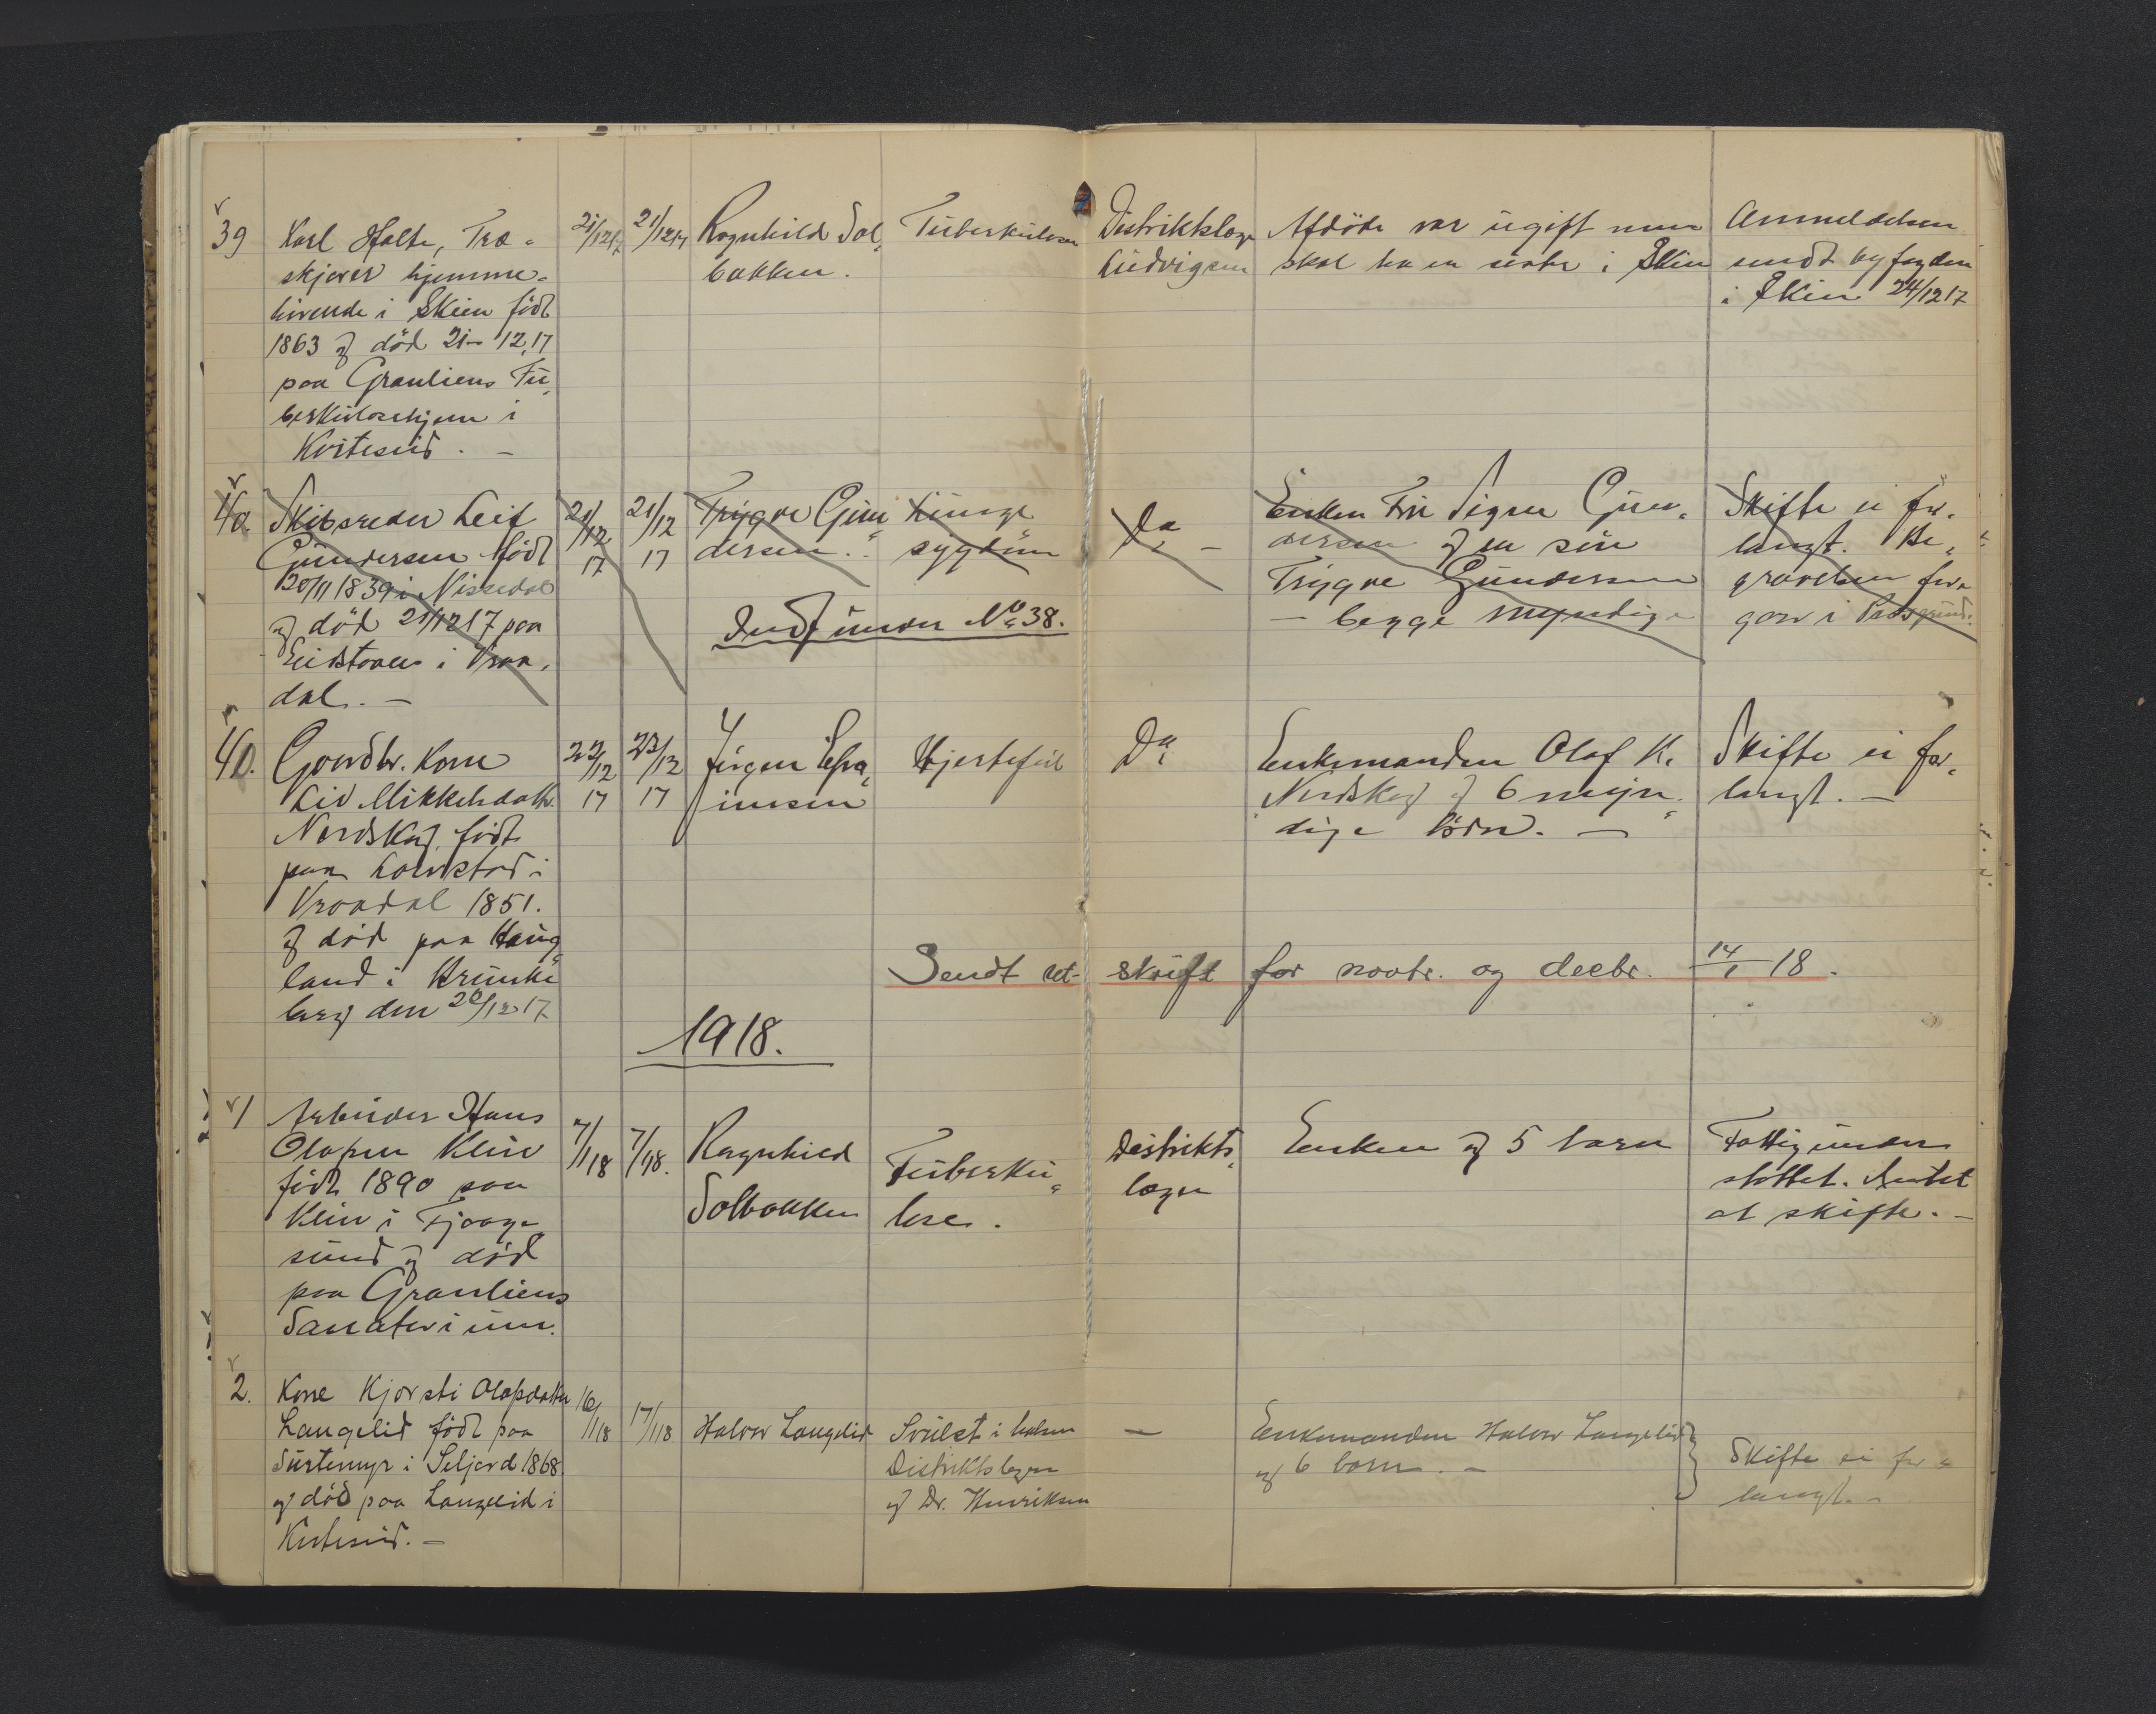 39
Karl Holte, Træ-
skjærer hjemme-
hørende i Skien født
1863 og död 21-12,17
paa Grauliens Tu-
berkulosehjem i
Kviteseid. -
21/12 17
21/12 17
Ragnhild Sol-
bakken.
Tuberkulose
Distriktslæge
Ludvigsen
Afdöde var ugift men
skal ha en søster i Skien
Anmeldelsen
sendt byfogden
i Skien 24/12 17
40.
Skibsreder Leif
Gundersen född
20/11 1839 i Nissedal
og död 21/12 17 paa
Eidstoen i Vraa-
dal. -
21/12 17
21/12 17
Trygve Gun-
dersen.
Lunge
sygdom
Do -
Indf under No 38.
Enken Fru Signe Gun-
dersen og en sön
Trygve Gundersen
- begge myndige
Skifte ei for-
langt. Be-
gravelsen fore-
gaar i Porsgrund.
40.
Gaardbr. kone
Liv Mikkelsdatter
Nordskog, født
paa Lovstad i
Vraadal 1851.
og död paa Haug-
land i Brunke-
berg den 20/12 17
22/12 17
23/12 17
Jörgen Efra-
imsen
Hjertefeil
Do
Enkemanden Olaf K.
Nordskog og 6 myn-
dige börn. -
Skifte ei for-
langt. -
Sendt ut- skrift for novbr. og decbr. 14/1 18.
1918.
1
Arbeider Hans
Olafsen Kleiv
född 1890 paa
Kleiv i Fjaage-
sund og död
paa Grauliens
Sanatorium.
7/1 18
7/1 18.
Ragnhild
Solbakken
Tuberku-
lose.
Distrikts-
lægen
Enken og 5 barn
Fattigunder-
støttet. Intet
at skifte. -
2.
Kone Kjersti Olafsdatter
Langelid född paa
Surtemyr i Seljord 1868
og död paa Langelid i
Kviteseid. -
16/1 18
17/1 18
Halvor Langelid
Svulst i halsen
Distriktslægen
og Dr. Henriksen
-
Enkemanden Halvor Langelid
og 6 barn. -
Skifte ei for-
langt. -